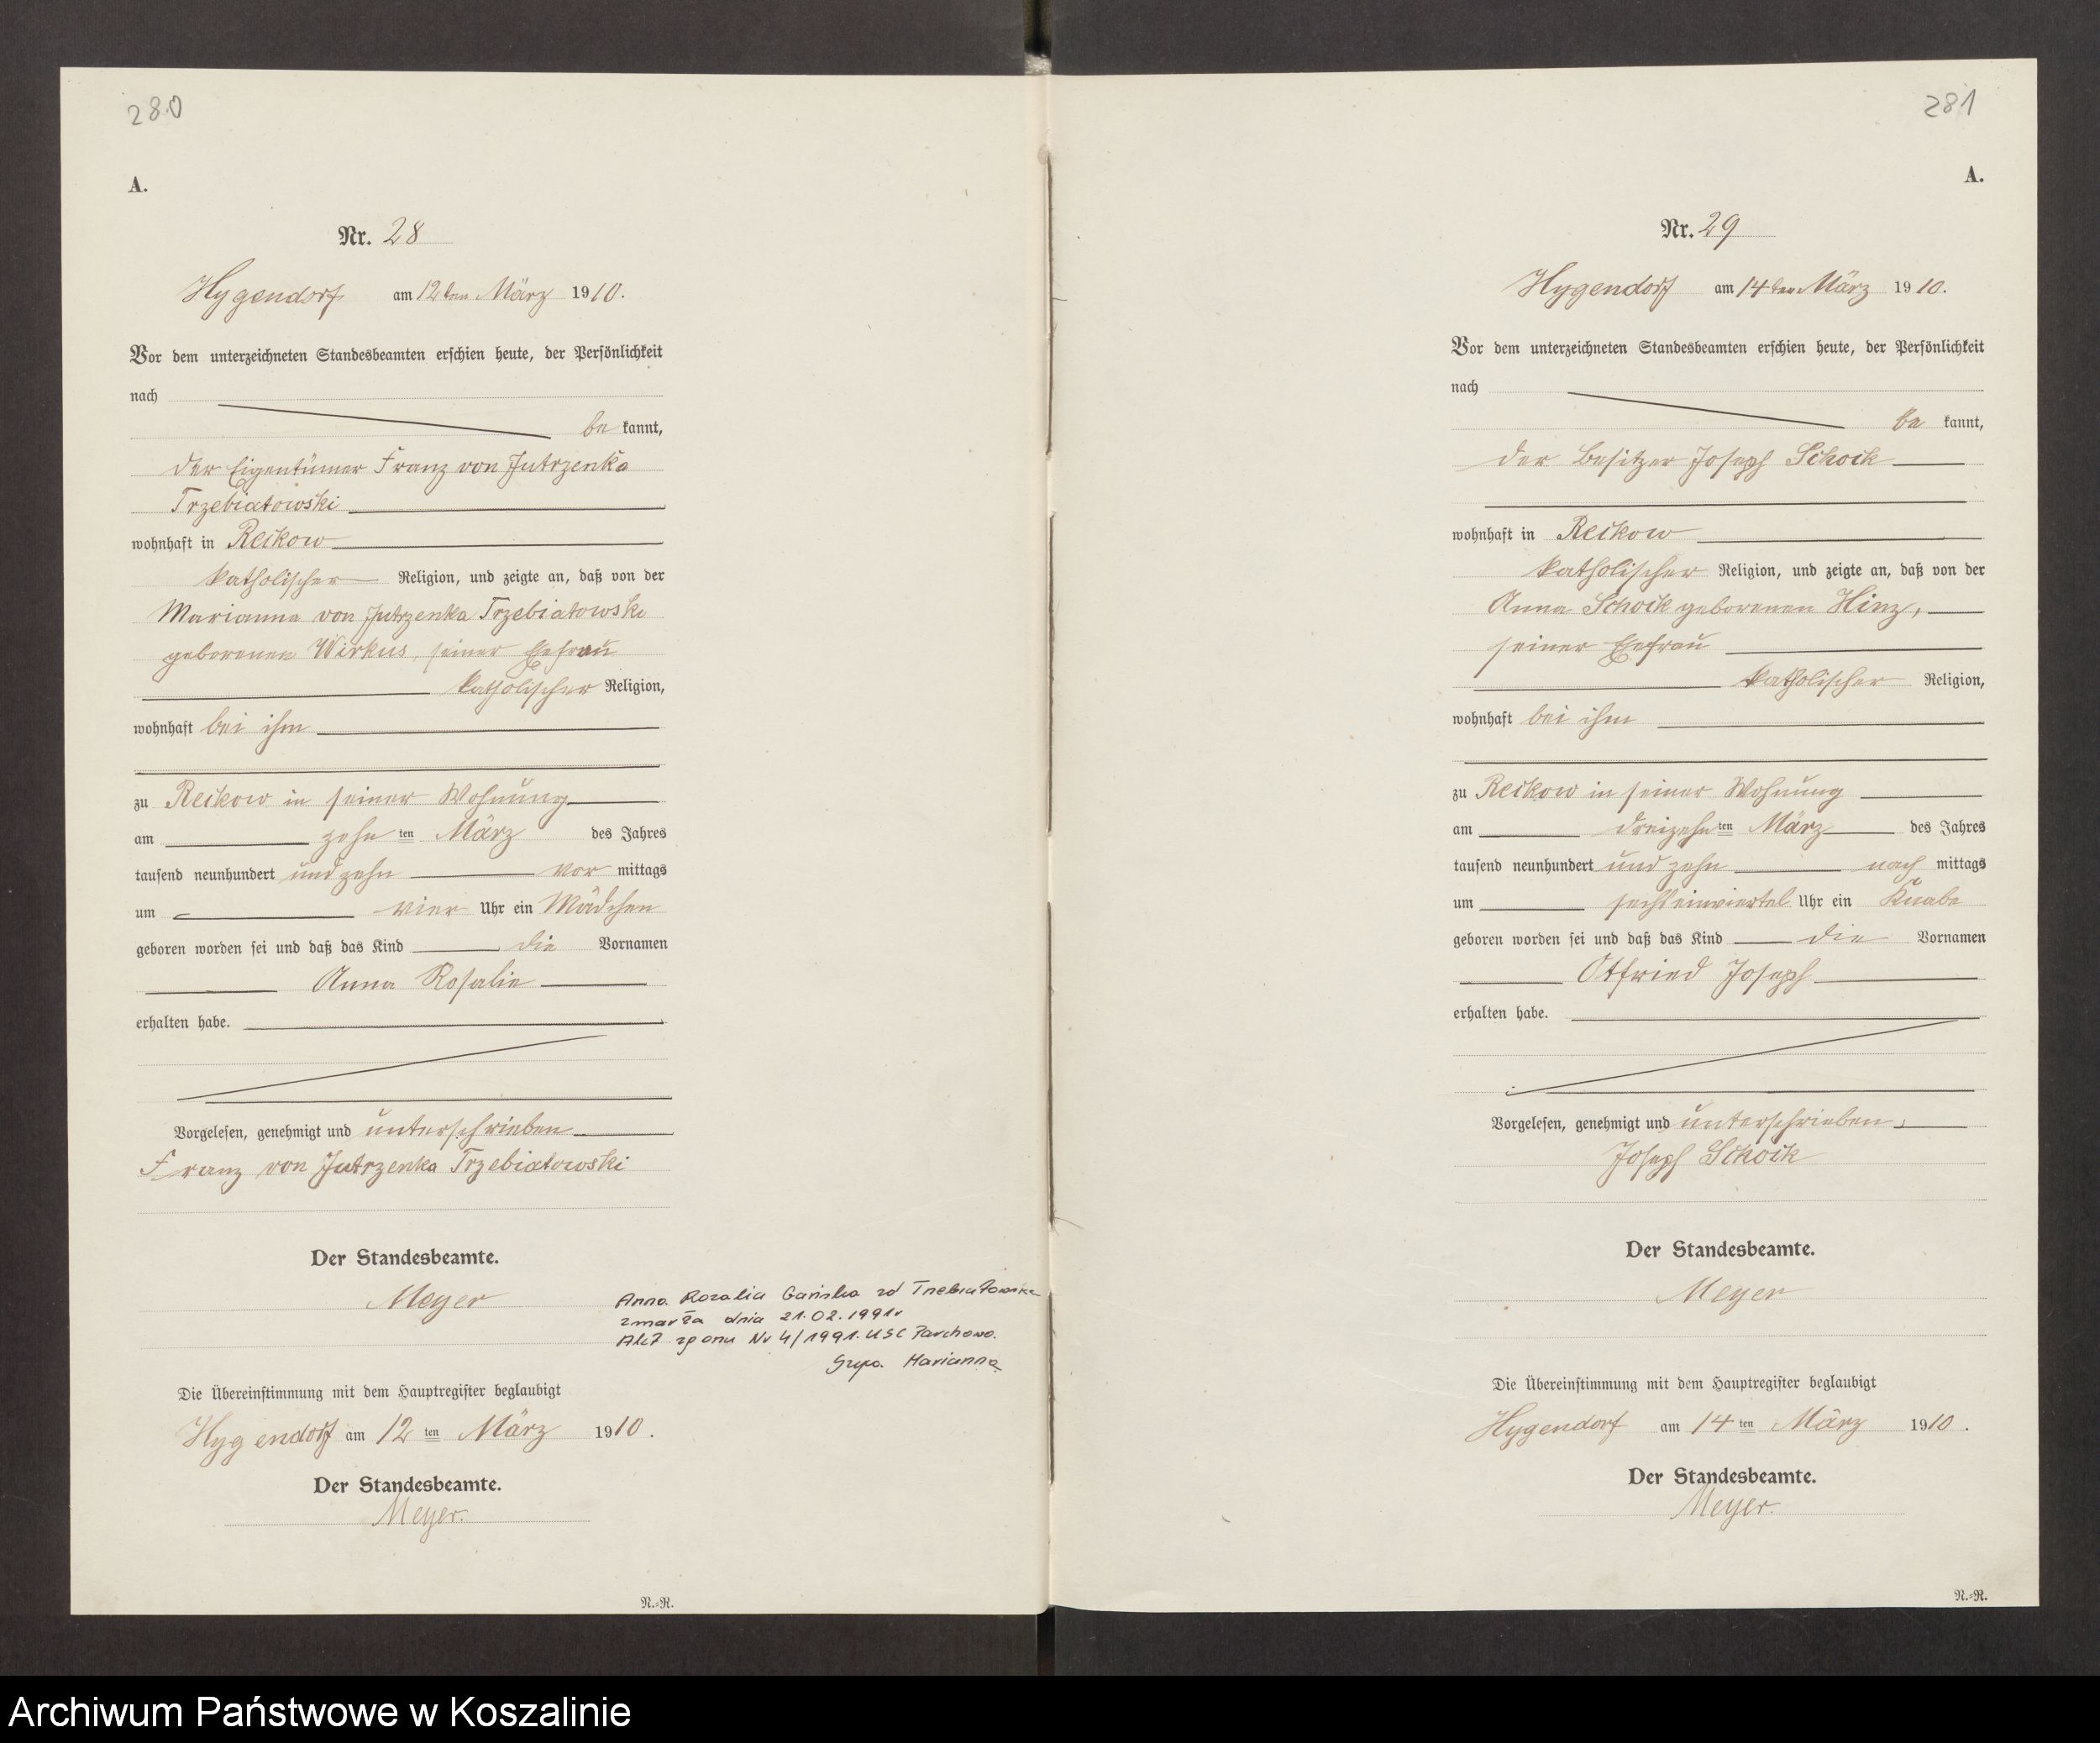 280
A.
Nr. 28
Hygendorf am 12ten März 1910.
Vor dem unterzeichneten Standesbeamten erschien heute, der Persönlichkeit
nach
be kannt,
der Eigentümer Franz von Jutrzenka
Trzebiatowski
wohnhaft in Reckow
katholischer Religion, und zeigte an, daß von der
Marianna von Jutrzenka Trzebiatowski
geborenen Wirkus, seiner Ehefrau
katholischer Religion,
wohnhaft bei ihm
zu Reckow in seiner Wohnung
am zehn ten März des Jahres
tausend neunhundert und zehn vor mittags
um vier Uhr ein Mädchen
geboren worden sei und daß das Kind die Vornamen
Anna Rosalie
erhalten habe.
Vorgelesen, genehmigt und unterschrieben
Franz von Jutrzenka Trzebiatowski
Der Standesbeamte.
Meyer
Anna Rozalia Gańska zd Trzebiatowska
zmarła dnia 21.02.1991r
Akt zgonu Nr 4/1991. USC Parchowo.
Marianna
Die Übereinstimmung mit dem Hauptregister beglaubigt
Hygendorf am 12 ten März 1910.
Der Standesbeamte.
Meyer.
N.-R.
281
A.
Nr. 29
Hygendorf am 14ten März 1910.
Vor dem unterzeichneten Standesbeamten erschien heute, der Persönlichkeit
nach
be kannt,
der Besitzer Joseph Schock
wohnhaft in Reckow
katholischer Religion, und zeigte an, daß von der
Anna Schock geborenen Hinz,
seiner Ehefrau
katholischer Religion,
wohnhaft bei ihm
zu Reckow in seiner Wohnung
am dreizehn ten März des Jahres
tausend neunhundert und zehn nach mittags
um sechseinviertel Uhr ein Knabe
geboren worden sei und daß das Kind die Vornamen
Otfried Joseph
erhalten habe.
Vorgelesen, genehmigt und unterschrieben,
Joseph Schock
Der Standesbeamte.
Meyer
Die Übereinstimmung mit dem Hauptregister beglaubigt
Hygendorf am 14 ten März 1910.
Der Standesbeamte.
Meyer.
N.-R.
Archiwum Państwowe w Koszalinie